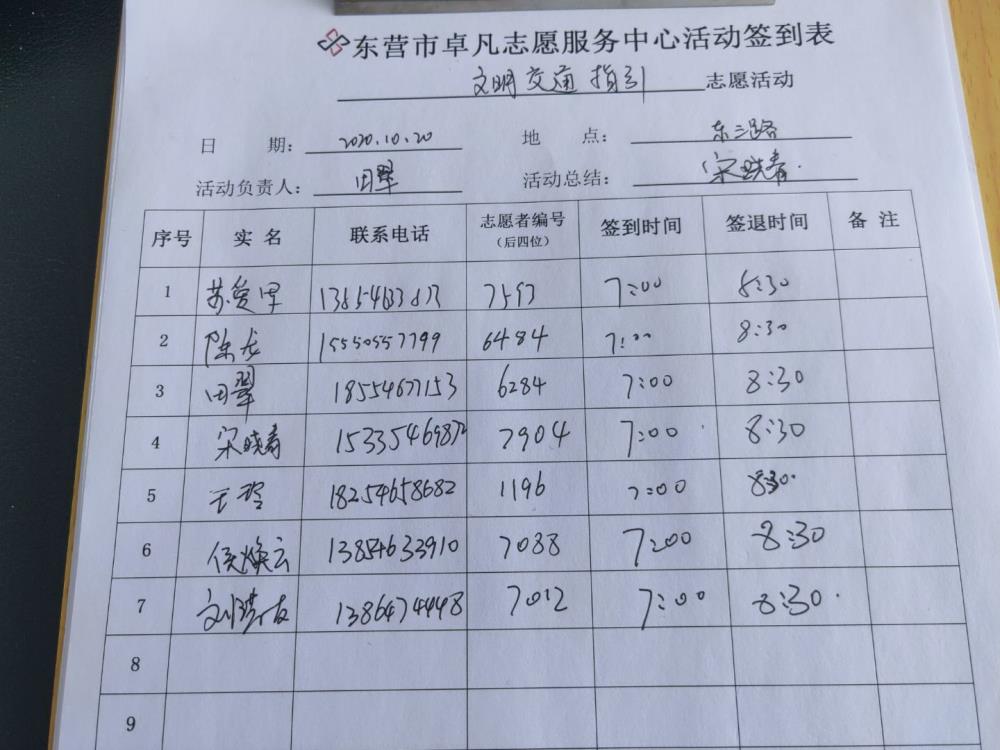 东营市卓凡志愿服务中心活动签到表
文明交通指引 志愿活动
日 期: 2020.10.20 地 点: 东三路
活动负责人: 田翠 活动总结: 宋晓春
序号 实 名 联系电话 志愿者编号 签到时间 签退时间 备 注
(后四位)
1 7:00 8:30
2 陈龙 15550557799 6484 7:00 8:30
3 田翠 18554677153 6284 7:00 8:30
4 宋晓春 7904 7:00 8:30
5 王玲 18254658682 1196 7:00 8:30
6 侯焕云 13854633910 7088 7:00 8:30
7 13864744448 7012 7:00 8:30
8
9